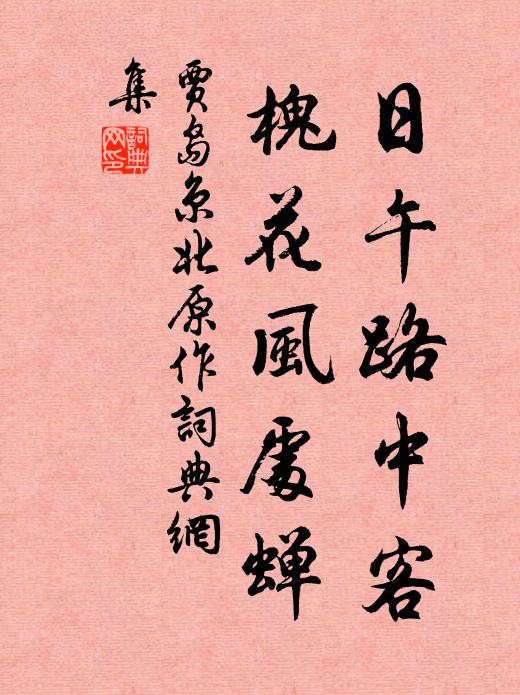 日午路中客
槐花風處蟬
賈島京北原作詞典網
集
詞典網印